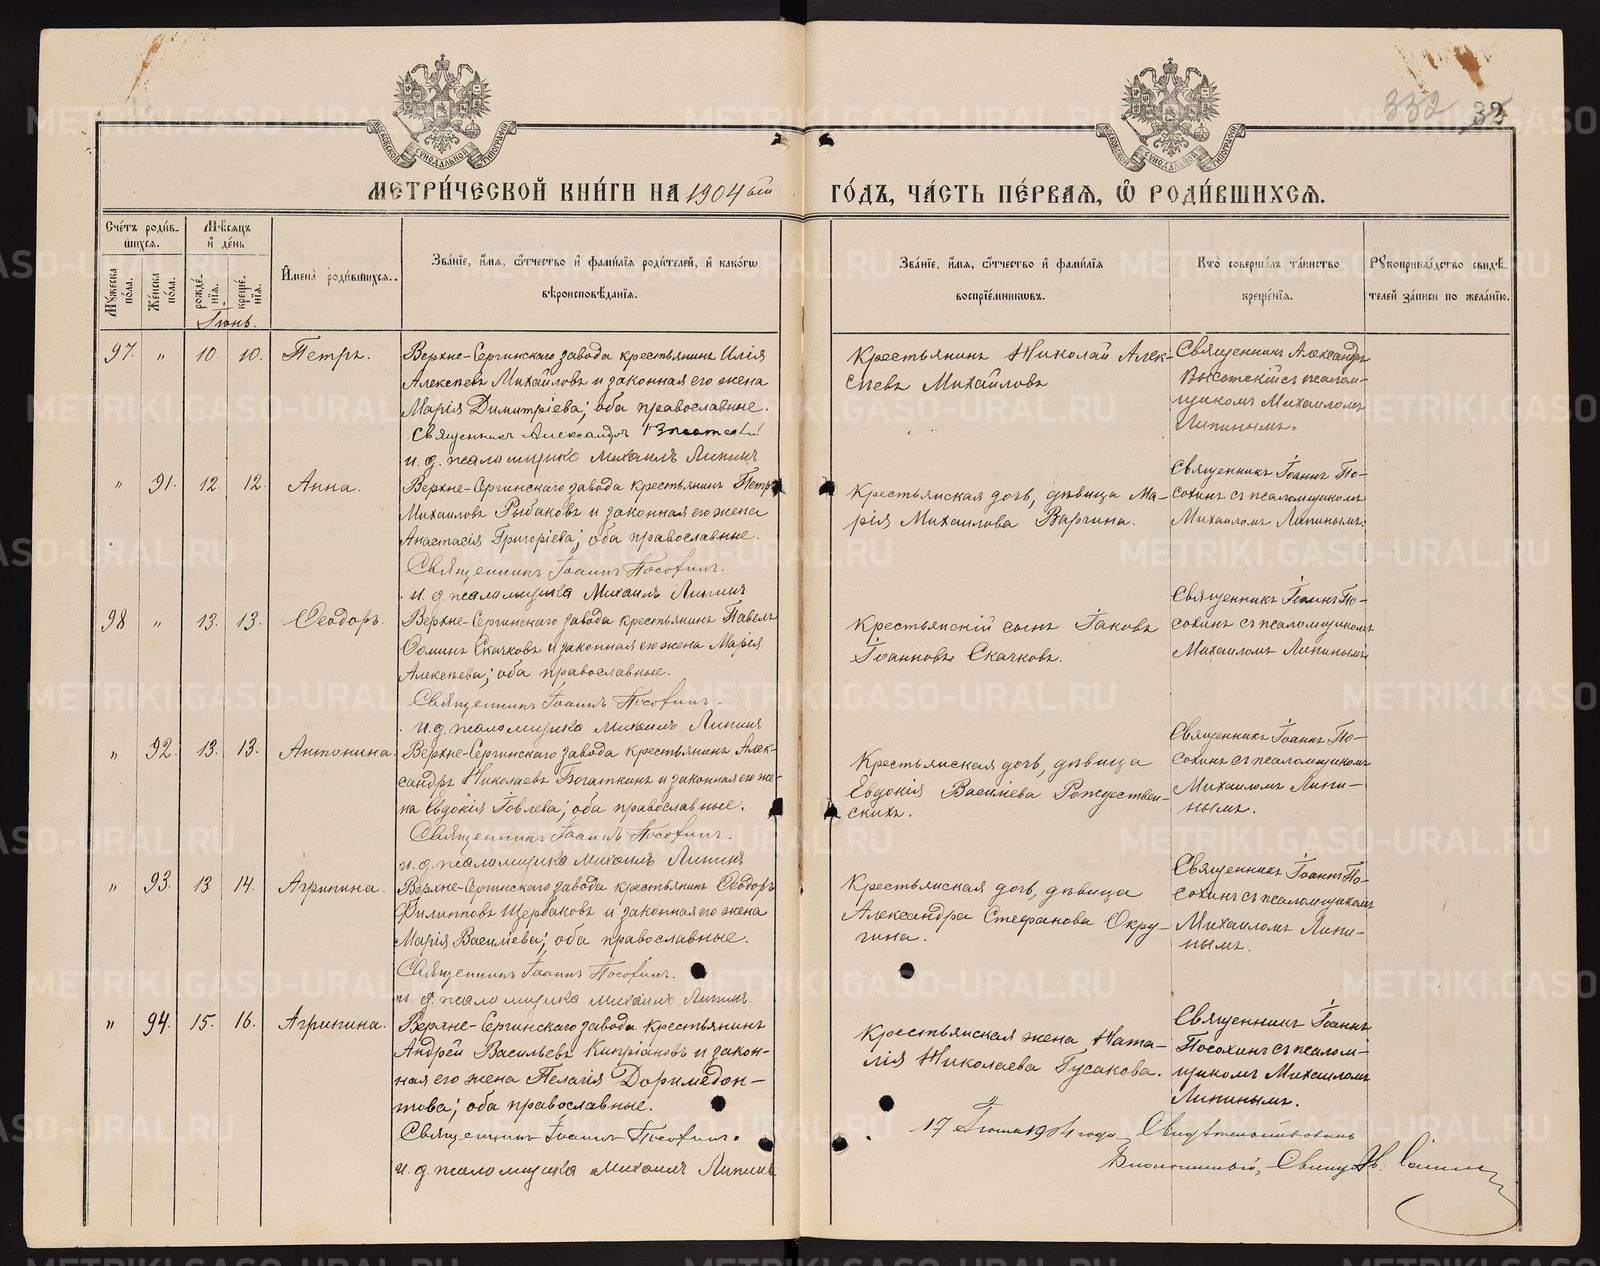 332 33
МОСКОВСКОЙ СѴНОДАЛЬНОЙ ТИПОГРАФІИ
МОСКОВСКОЙ СѴНОДАЛЬНОЙ ТИПОГРАФІИ
МЕТРИ́ЧЕСКОЙ КНИ́ГИ НА 1904 ый ГО́ДЪ, ЧА́СТЬ ПЕ́РВАѦ, Ѡ҆ РОДИ́ВШИХСѦ.
Сче́тъ роди́в-
шихся.
Мꙋжеска по́ла.
Же́нска по́ла.
Мѣ́сяцъ и҆ де́нь
рожде́-нїя.
креще́-нїя.
И҆мена̀ роди́вшихся.
Зва́нїе, и҆́мя, ѻ҆́тчество и҆ фами́лїя роди́телей, и҆ како́гѡ
вѣроисповѣ́данїя.
Зва́нїе, и҆́мя, ѻ҆́тчество и҆ фами́лїя
воспрїе́мникѡвъ.
Кто̀ соверша́лъ та́инство
креще́нїя.
Рꙋкоприкла́дство свидѣ́-
телей за́писи по жела́нїю.
Іюнь.
97. " 10. 10. Петръ.
Верхне-Сергинскаго завода крестьянинъ Илія
Алексѣевъ Михайловъ и законная его жена
Марія Димитріева; оба православные.
Священникъ Александръ Высотскій
и. д. псаломщика Михаилъ Липинъ
Крестьянинъ Николай Алек-
сѣевъ Михайловъ
Священникъ Александръ
Высотскій съ псалом-
щикомъ Михаиломъ
Липинымъ.
" 91. 12. 12. Анна.
Верхне-Сергинскаго завода крестьянинъ Петръ
Михаиловъ Рыбаковъ и законная его жена
Анастасія Григоріева; оба православные.
Священникъ Іоаннъ Посохинъ.
и. д. псаломщика Михаилъ Липинъ
Крестьянская дочь, дѣвица Ма-
рія Михаилова Варгина.
Священникъ Іоаннъ По-
сохинъ съ псаломщикомъ
Михаиломъ Липинымъ.
98 " 13. 13. Ѳеодоръ.
Верхне-Сергинскаго завода крестьянинъ Павелъ
Ѳоминъ Скачковъ и законная его жена Марія
Алексѣева; оба православные.
Священникъ Іоаннъ Посохинъ.
и. д. псаломщика Михаилъ Липинъ
Крестьянскій сынъ Іаковъ
Іоанновъ Скачковъ.
Священникъ Іоаннъ По-
сохинъ съ псаломщикомъ
Михаиломъ Липинымъ
" 92. 13. 13. Антонина.
Верхне-Сергинскаго завода крестьянинъ Алек-
сандръ Николаевъ Богаткинъ и законная его же-
на Евдокія Іовлева; оба православные.
Священникъ Іоаннъ Посохинъ.
и. д. псаломщика Михаилъ Липинъ
Крестьянская дочь, дѣвица
Евдокія Василіева Рождествен-
скихъ.
Священникъ Іоаннъ По-
сохинъ съ псаломщикомъ
Михаиломъ Липи-
нымъ.
" 93. 13 14. Агрипина.
Верхне-Сергинскаго завода крестьянинъ Ѳеодоръ
Филипповъ Щербаковъ и законная его жена
Марія Василіева; оба православные.
Священникъ Іоаннъ Посохинъ.
и. д. псаломщика Михаилъ Липинъ.
Крестьянская дочь, дѣвица
Александра Стефанова Окру-
гина.
Священникъ Іоаннъ По-
сохинъ съ псаломщикомъ
Михаиломъ Липи-
нымъ.
" 94. 15. 16. Агрипина.
Верхне-Сергинскаго завода крестьянинъ
Андрей Васильевъ Кипріановъ и закон-
ная его жена Пелагія Доримедон-
това; оба православные.
Священникъ Іоаннъ Посохинъ.
и. д. псаломщика Михаилъ Липинъ
Крестьянская жена Ната-
лія Николаева Гусакова.
Священникъ Іоаннъ
Посохинъ съ псалом-
щикомъ Михаиломъ
Липинымъ.
17 Іюня 1904 года Свидѣтельствовалъ
Благочинный, Священ.
METRIKI.GASO-URAL.RU